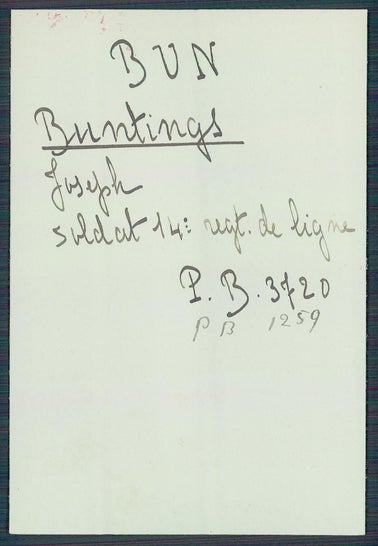 BUN
Buntings
Joseph
soldat 14: regt. de ligne
P. B. 3720
P B 1259